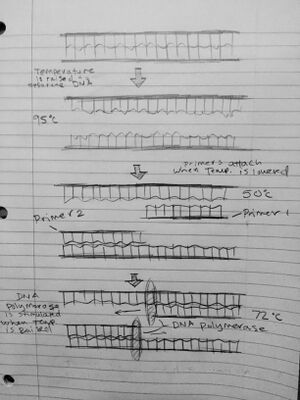 Temperature
is raised
separate DNA
95°C
primers attach
when Temp. is lowered
50°C
Primer 2
Primer 1
DNA
Polymerase
is stimulated
when temp.
is
72°C
DNA Polymerase